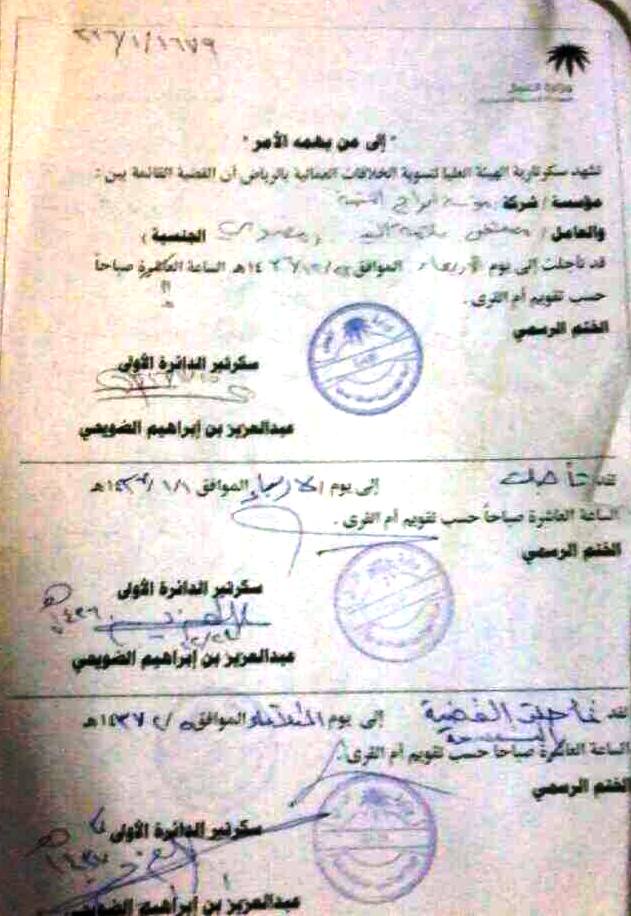 ٣٦/١/١٦٧٩
وزارة العدل
" إلى من يهمه الأمر "
تشهد سكرتارية الهيئة العليا لتسوية الخلافات العمالية بالرياض أن القضية القائمة بين :
مؤسسة / شركة
والعامل / الجنسية )
قد تأجلت إلى يوم الأربعاء الموافق هـ الساعة العاشرة صباحاً
حسب تقويم أم القرى .
الختم الرسمي
سكرتير الدائرة الأولى
عبدالعزيز بن إبراهيم الضويحي
لقد تأجلت إلى يوم الأربعاء الموافق ١/١/ ١٤٣٧هـ
الساعة العاشرة صباحاً حسب تقويم أم القرى .
الختم الرسمي
سكرتير الدائرة الأولى
١٤٣٦هـ
١٢/٢٩
عبدالعزيز بن إبراهيم الضويحي
لقد تأجلت القضية إلى يوم الموافق ١٤٣٧هـ
الساعة العاشرة صباحاً حسب تقويم أم القرى .
الختم الرسمي
سكرتير الدائرة الأولى
١٤٣٧هـ
عبدالعزيز بن إبراهيم الضويحي